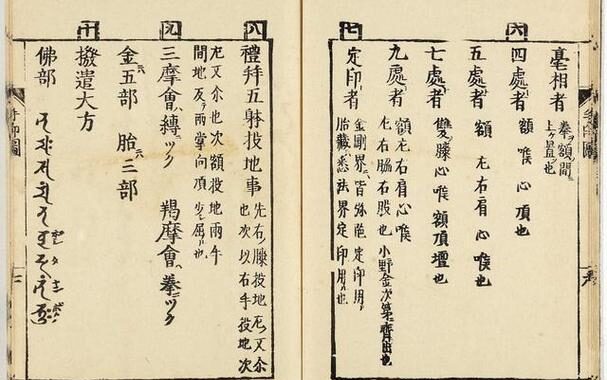 六
毫相者 拳額間
上ヶ置也
四處者 額 喉 心 頂也
五處者 額 左右肩 心 喉也
七處者 雙膝心喉額頂壇也
九處者 額左右肩心喉
左右脇右股也 小野金次第齊出也
七
定印者 金剛界皆弥陀定印用也
胎藏悉法界定印用也
八
禮拜五躰投地事 先右膝投地左又尒
也次以右手投地次
左又尒也次額投地兩手
間地反兩掌向頂少屈也
九
三摩會ハ縛ニツク 羯摩會ハ拳ニツク
金ハ五部 胎ハ三部
十
撥遣大方
佛部
手印圖